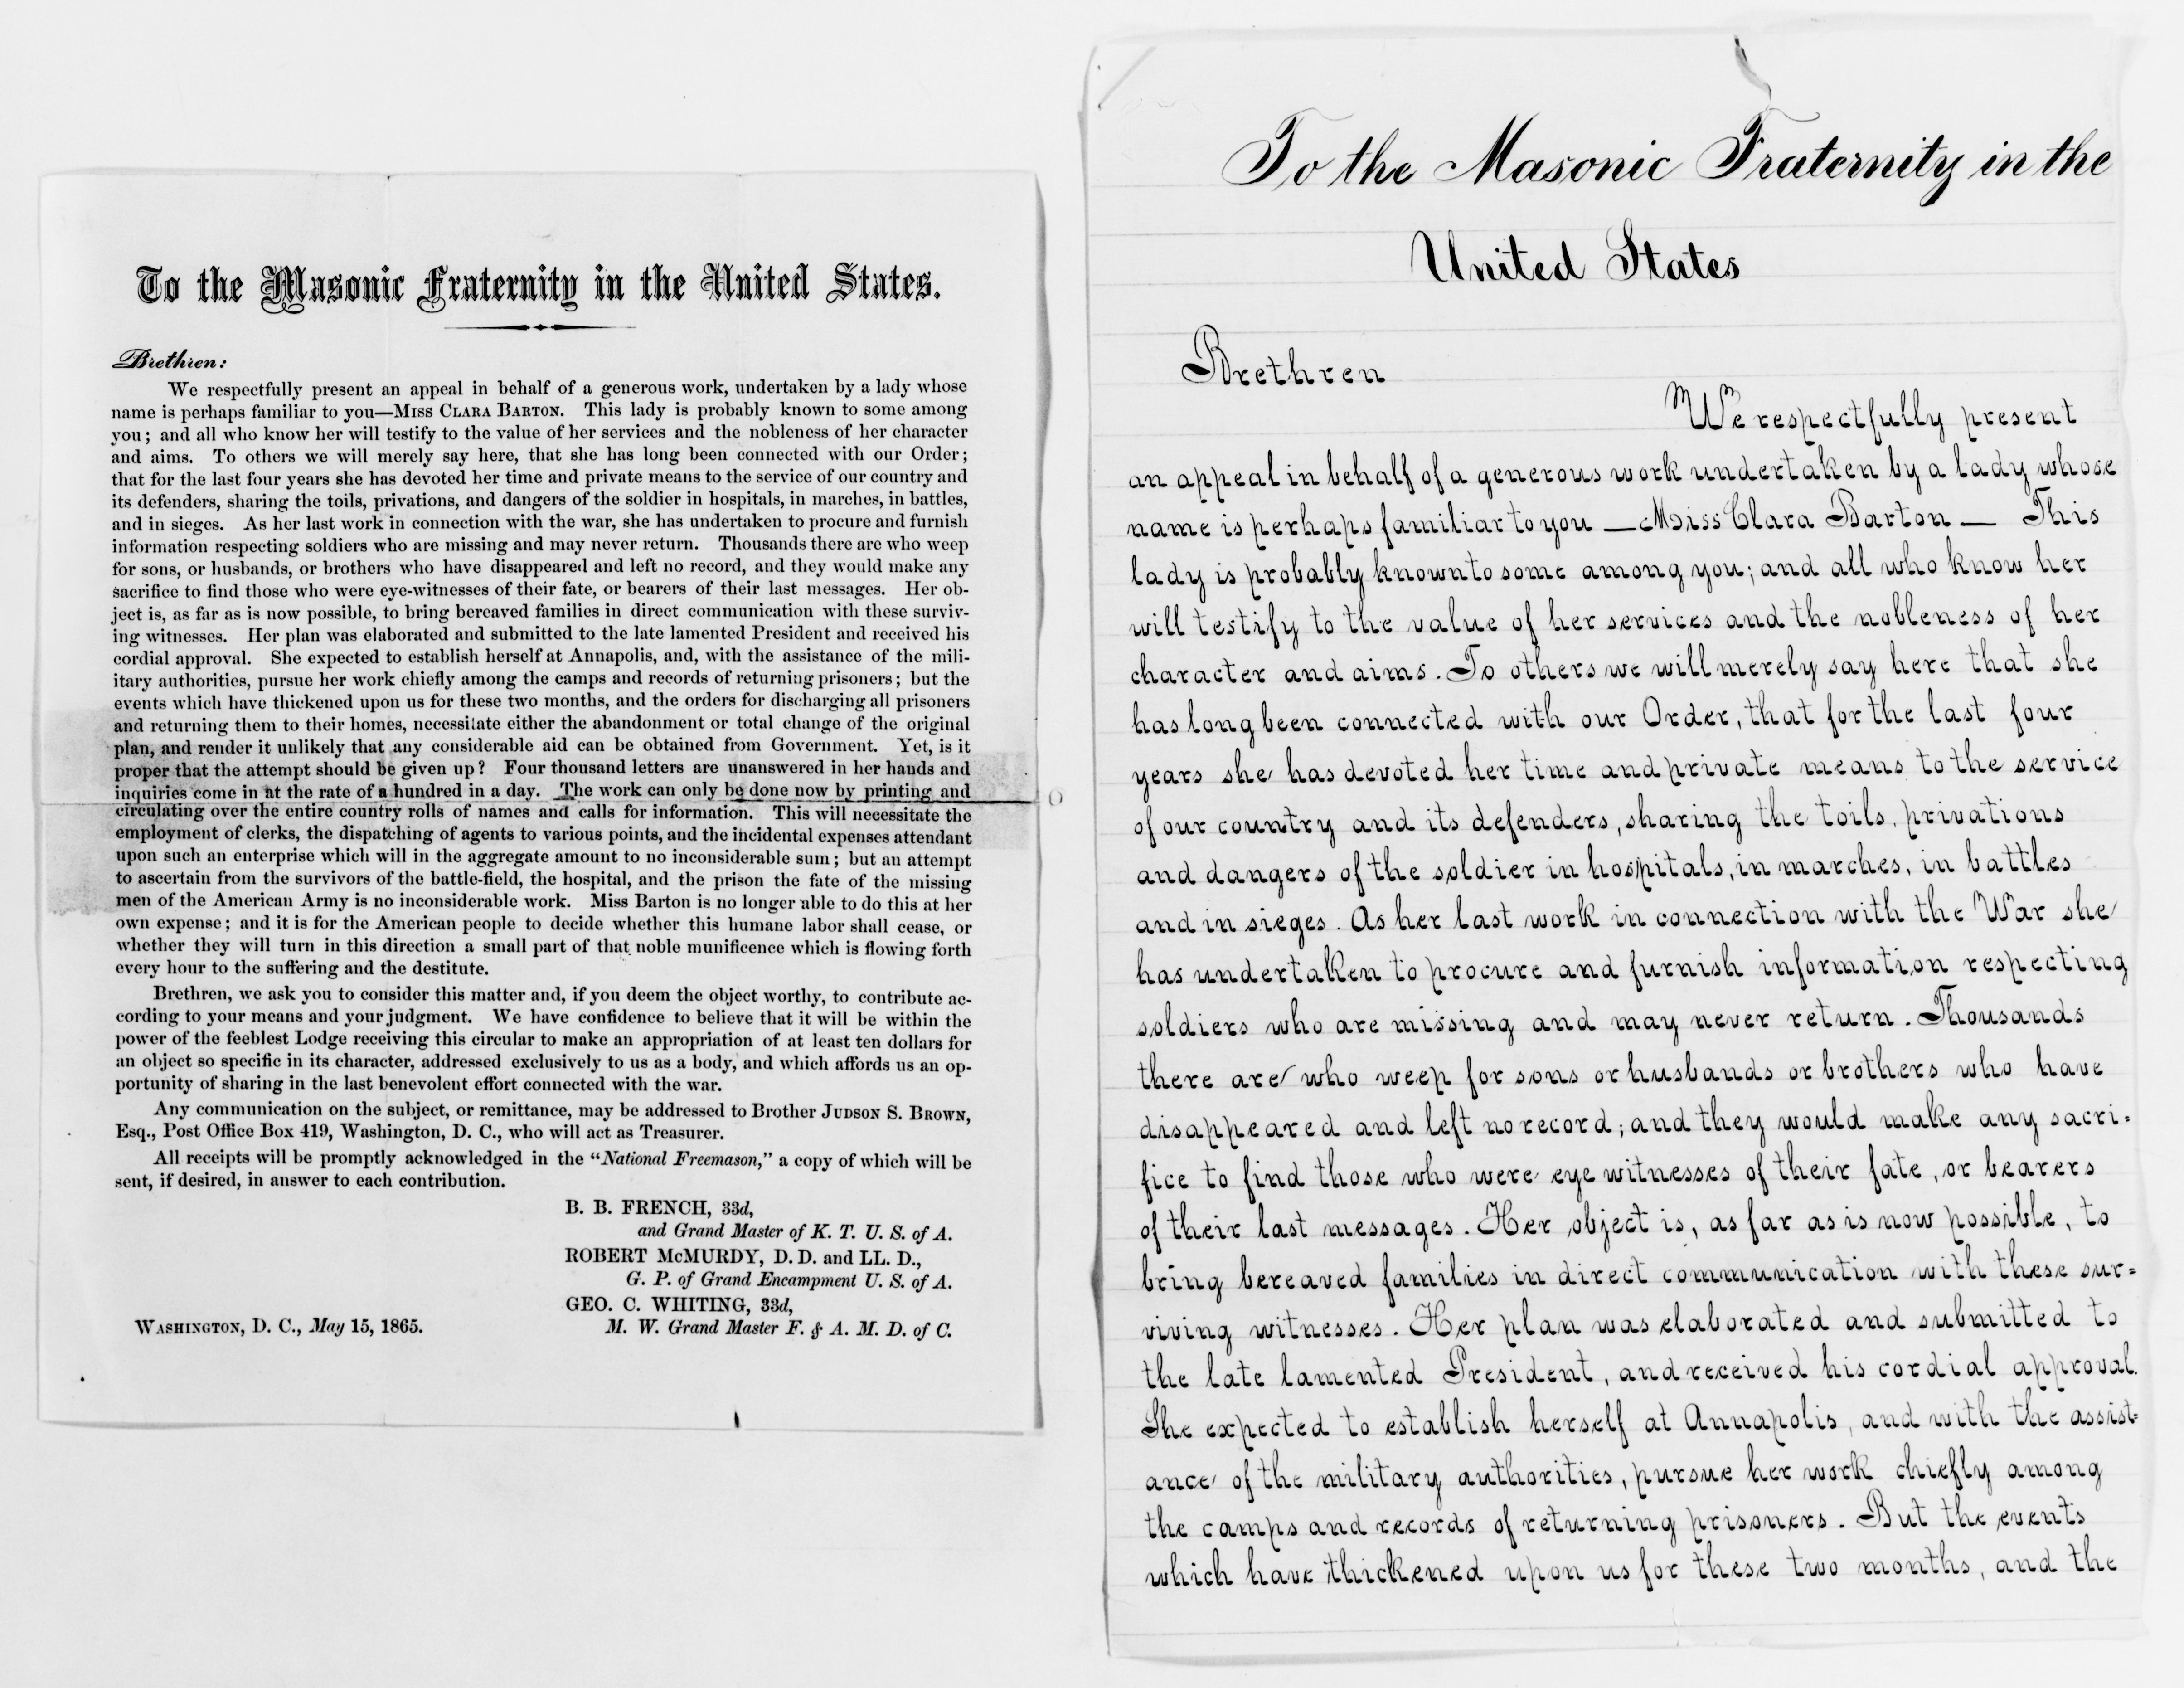 To the Masonic Fraternity in the United States.
Brethren:
We respectfully present an appeal in behalf of a generous work, undertaken by a lady whose
name is perhaps familiar to you—MISS CLARA BARTON. This lady is probably known to some among
you; and all who know her will testify to the value of her services and the nobleness of her character
and aims. To others we will merely say here, that she has long been connected with our Order;
that for the last four years she has devoted her time and private means to the service of our country and
its defenders, sharing the toils, privations, and dangers of the soldier in hospitals, in marches, in battles,
and in sieges. As her last work in connection with the war, she has undertaken to procure and furnish
information respecting soldiers who are missing and may never return. Thousands there are who weep
for sons, or husbands, or brothers who have disappeared and left no record, and they would make any
sacrifice to find those who were eye-witnesses of their fate, or bearers of their last messages. Her ob-
ject is, as far as is now possible, to bring bereaved families in direct communication with these surviv-
ing witnesses. Her plan was elaborated and submitted to the late lamented President and received his
cordial approval. She expected to establish herself at Annapolis, and, with the assistance of the mili-
itary authorities, pursue her work chiefly among the camps and records of returning prisoners; but the
events which have thickened upon us for these two months, and the orders for discharging all prisoners
and returning them to their homes, necessitate either the abandonment or total change of the original
plan, and render it unlikely that any considerable aid can be obtained from Government. Yet, is it
proper that the attempt should be given up? Four thousand letters are unanswered in her hands and
inquiries come in at the rate of a hundred in a day. The work can only be done now by printing and
circulating over the entire country rolls of names and calls for information. This will necessitate the
employment of clerks, the dispatching of agents to various points, and the incidental expenses attendant
upon such an enterprise which will in the aggregate amount to no inconsiderable sum; but an attempt
to ascertain from the survivors of the battle-field, the hospital, and the prison the fate of the missing
men of the American Army is no inconsiderable work. Miss Barton is no longer able to do this at her
own expense; and it is for the American people to decide whether this humane labor shall cease, or
whether they will turn in this direction a small part of that noble munificence which is flowing forth
every hour to the suffering and the destitute.
Brethren, we ask you to consider this matter and, if you deem the object worthy, to contribute ac-
cording to your means and your judgment. We have confidence to believe that it will be within the
power of the feeblest Lodge receiving this circular to make an appropriation of at least ten dollars for
an object so specific in its character, addressed exclusively to us as a body, and which affords us an op-
portunity of sharing in the last benevolent effort connected with the war.
Any communication on the subject, or remittance, may be addressed to Brother JUDSON S. BROWN,
Esq., Post Office Box 419, Washington, D. C., who will act as Treasurer.
All receipts will be promptly acknowledged in the "National Freemason," a copy of which will be
sent, if desired, in answer to each contribution.
B. B. FRENCH, 33d,
and Grand Master of K. T. U. S. of A.
ROBERT McMURDY, D. D. and LL. D.,
G. P. of Grand Encampment U. S. of A.
GEO. C. WHITING, 33d,
M. W. Grand Master F. & A. M. D. of C.
WASHINGTON, D. C., May 15, 1865.
To the Masonic Fraternity in the
United States
Brethren
We respectfully present
an appeal in behalf of a generous work undertaken by a lady whose
name is perhaps familiar to you — Miss Clara Barton — This
lady is probably known to some among you; and all who know her
will testify to the value of her services and the nobleness of her
character and aims. To others we will merely say here that she
has long been connected with our Order, that for the last four
years she has devoted her time and private means to the service
of our country and its defenders, sharing the toils, privations
and dangers of the soldier in hospitals, in marches, in battles
and in sieges. As her last work in connection with the War she
has undertaken to procure and furnish information respecting
soldiers who are missing and may never return. Thousands
there are who weep for sons or husbands or brothers who have
disappeared and left no record; and they would make any sacri=
fice to find those who were eye witnesses of their fate, or bearers
of their last messages. Her object is, as far as is now possible, to
bring bereaved families in direct communication with these sur=
viving witnesses. Her plan was elaborated and submitted to
the late lamented President, and received his cordial approval.
She expected to establish herself at Annapolis, and with the assist=
ance of the military authorities, pursue her work chiefly among
the camps and records of returning prisoners. But the events
which have thickened upon us for these two months, and the